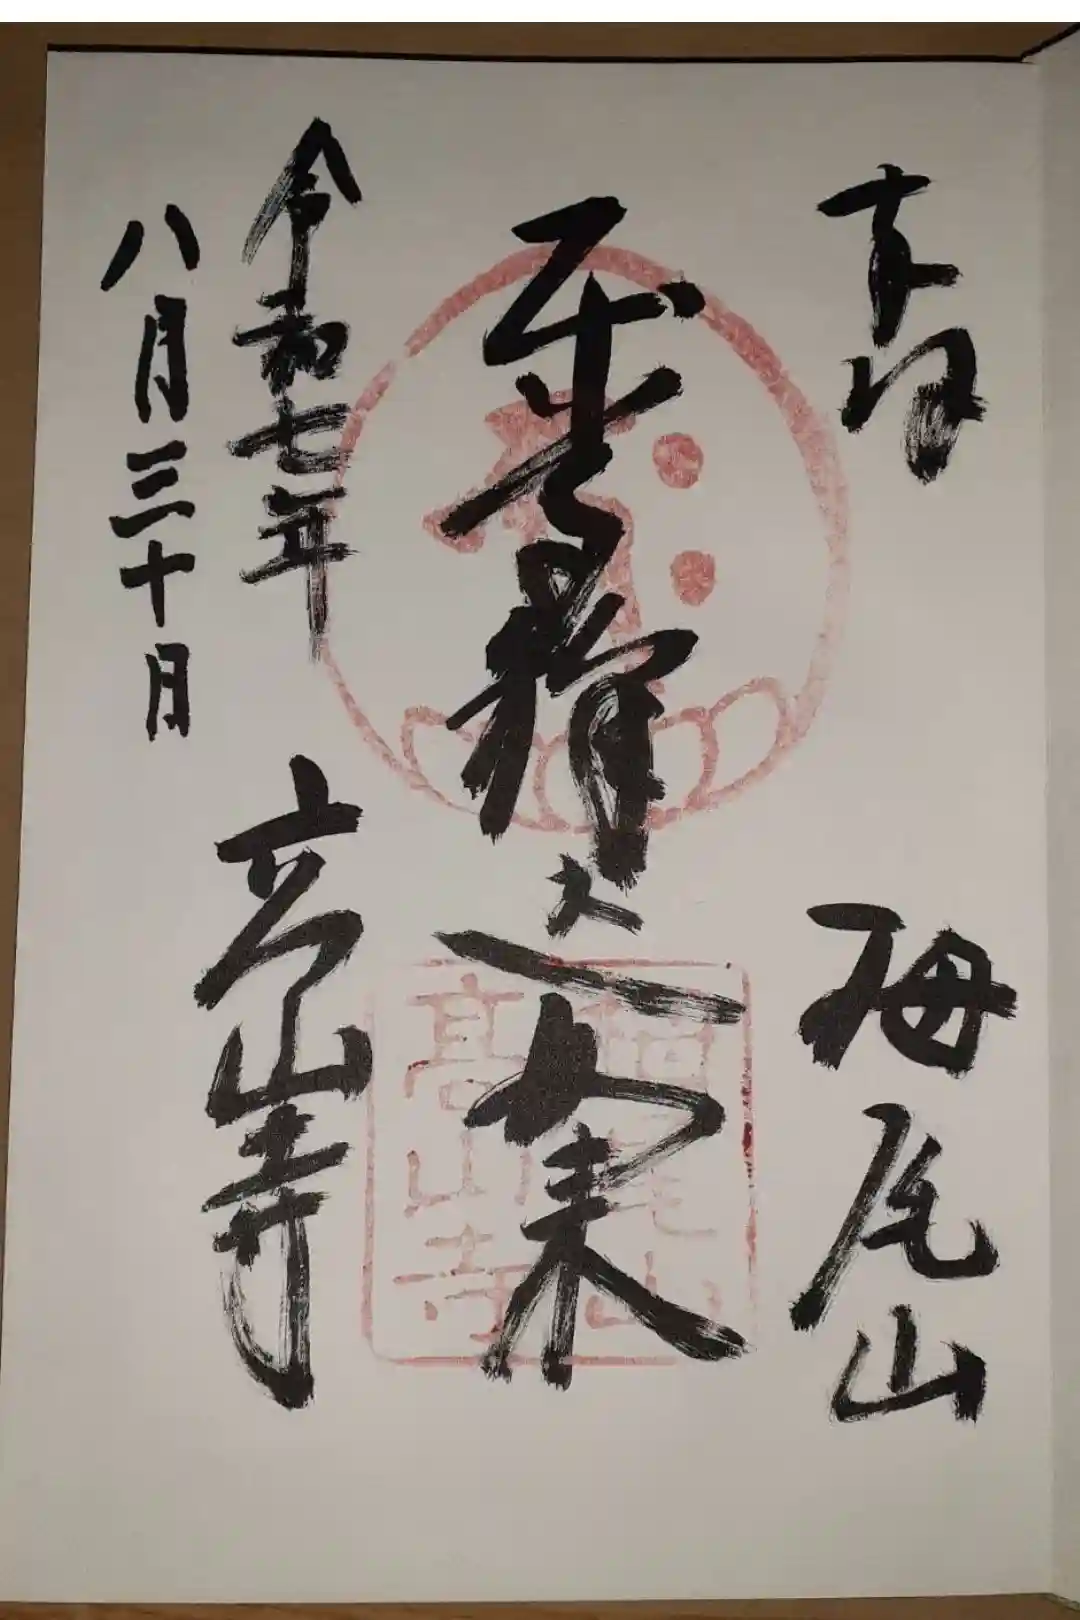 奉拝
栂尾山
如来
令和七年
八月三十日
高山寺
栂尾山
高山寺